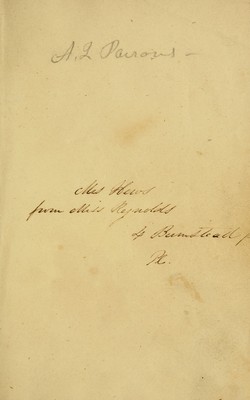 A. L Parsons –
Mrs Hews
from Miss Reynolds
4 Bumstead